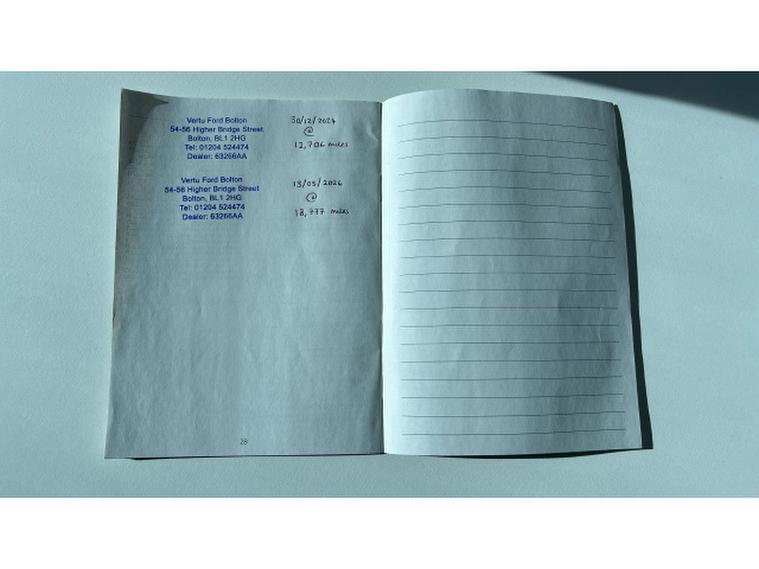 Vertu Ford Bolton
54-56 Higher Bridge Street
Bolton, BL1 2HG
Tel: 01204 524474
Dealer: 63266AA
30/12/2024
@
12,706 miles
Vertu Ford Bolton
54-56 Higher Bridge Street
Bolton, BL1 2HG
Tel: 01204 524474
Dealer: 63266AA
13/03/2026
@
18,777 miles
28